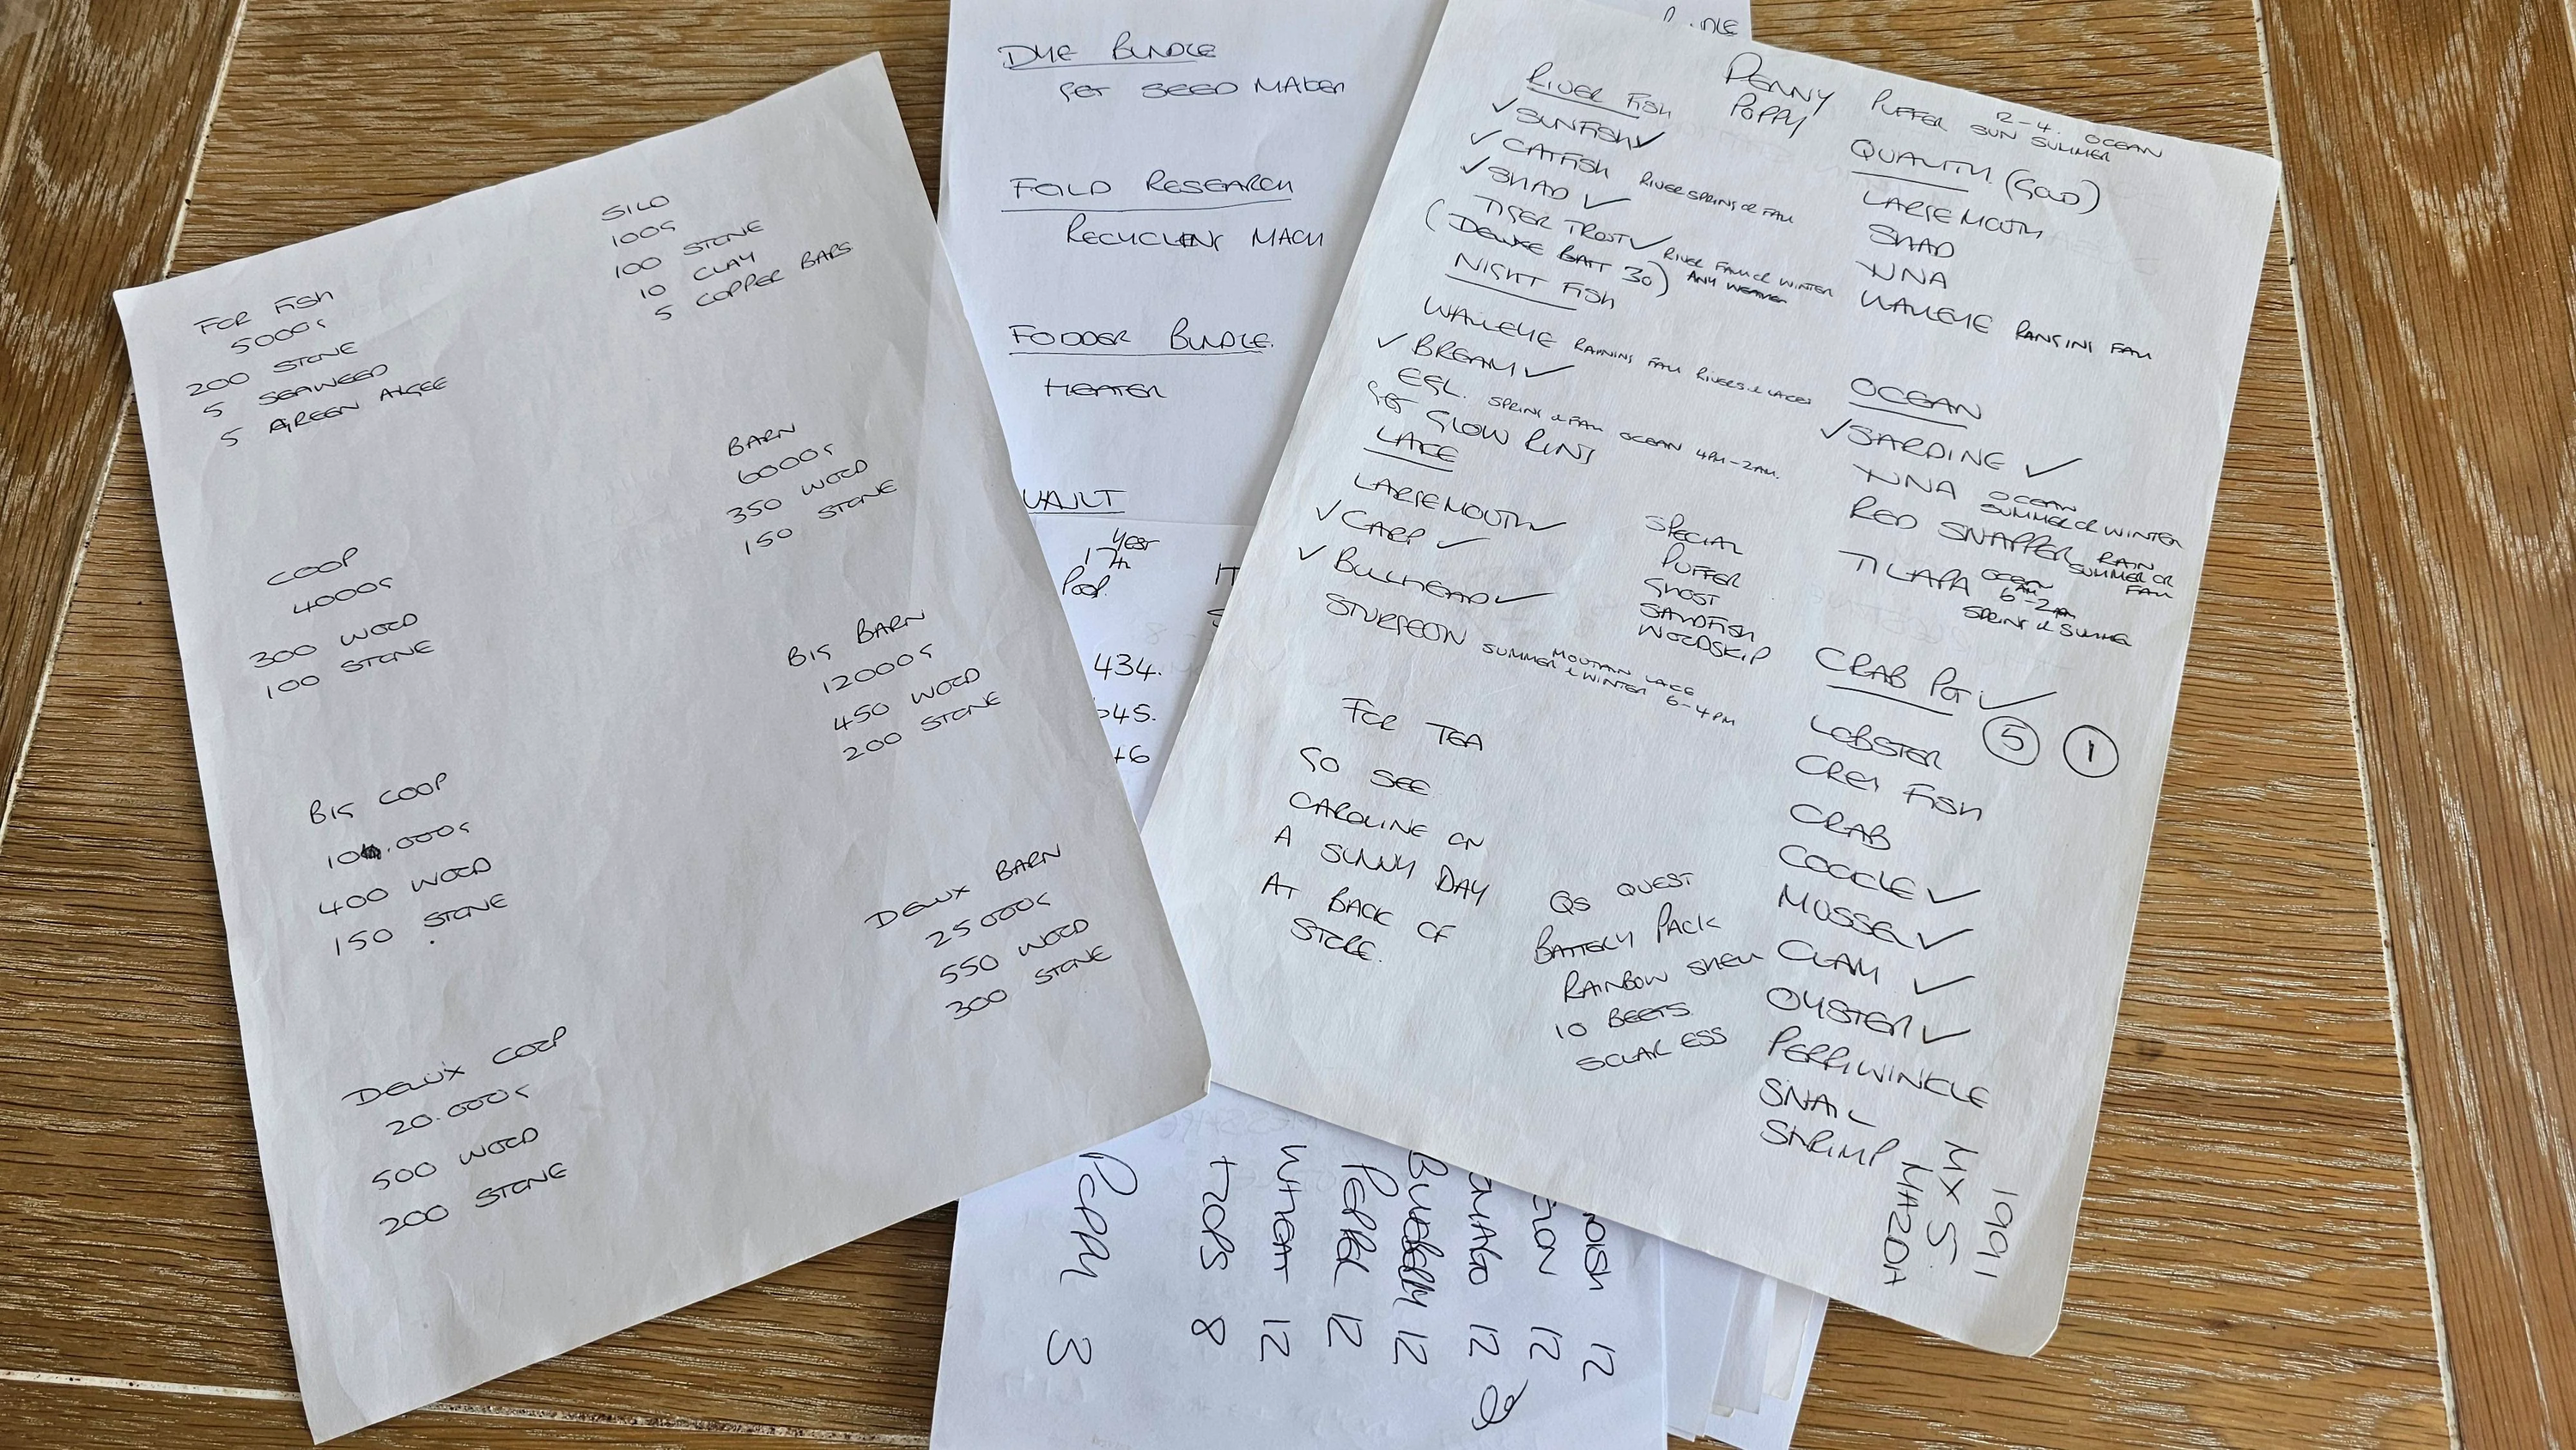 FOR FISH
5000G
200 STONE
5 SEAWEED
5 GREEN ALGEE
SILO
100G
100 STONE
10 CLAY
5 COPPER BARS
COOP
4000G
300 WOOD
100 STONE
BARN
6000G
350 WOOD
150 STONE
BIG COOP
10.000G
400 WOOD
150 STONE
BIG BARN
12000G
450 WOOD
200 STONE
DELUX COOP
20.000G
500 WOOD
200 STONE
DELUX BARN
25000G
550 WOOD
300 STONE
DYE BUNDLE
GET SEED MAKER
FEILD RESEARCH
RECYCLING MACH
FODDER BUNDLE.
HEATER
VAULT
YEST
17th
Pool.
434.
645.
+6
PENNY
POPPY
PUFFER 12-4. OCEAN
SUN SUMMER
RIVER FISH
✓ SUNFISH ✓
✓ CATFISH RIVER SPRING OR FALL
✓ SHAD ✓
TIGER TROT ✓ RIVER FALL OR WINTER
(DELUXE BAIT 30) ANY WEATHER
NIGHT FISH
WALLEYE RAINING FALL RIVERS & LAKES
✓ BREAM ✓
EEL. SPRING & FALL OCEAN 4PM-2AM.
GET GLOW RING
LAKE
LARGEMOUTH ✓
✓ CARP ✓
✓ BULLHEAD ✓
STURGEON SUMMER & WINTER 6-4PM
MOUTAIN LAKE
QUALITY. (GOLD)
LARGEMOUTH
SHAD
TUNA
WALLEYE RANGING FALL
OCEAN
✓ SARDINE ✓
TUNA OCEAN
SUMMER OR WINTER
RED SNAPPER RAIN OR
SUMMER OR
FALL
TILAPA OCEAN
6AM-2PM
SPRING & SUMMER
SPECIAL
PUFFER
GHOST
SANDFISH
WOODSKIP
CRAB POT ✓
5 1
LOBSTER
CREY FISH
CRAB
COCCLE ✓
MUSSEL ✓
CLAM ✓
OYSTER ✓
PERRIWINKLE
SNAIL
SHRIMP
FOR TEA
GO SEE
CAROLINE ON
A SUNNY DAY
AT BACK OF
STORE.
QS QUEST
BATTERY PACK
RAINBOW SHELL
10 BEETS
SOLAR ESS
1991
MX 5
MAZDA
POPPY 3
HOPS 8
WHEAT 12
PEPPER 12
BLUEBERRY 12
12
12
12